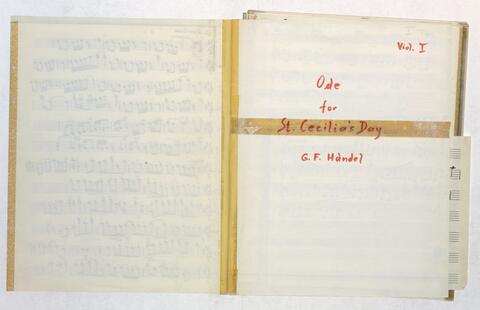 Viol. I
Ode
for
St. Cecilia's Day
G. F. Händel